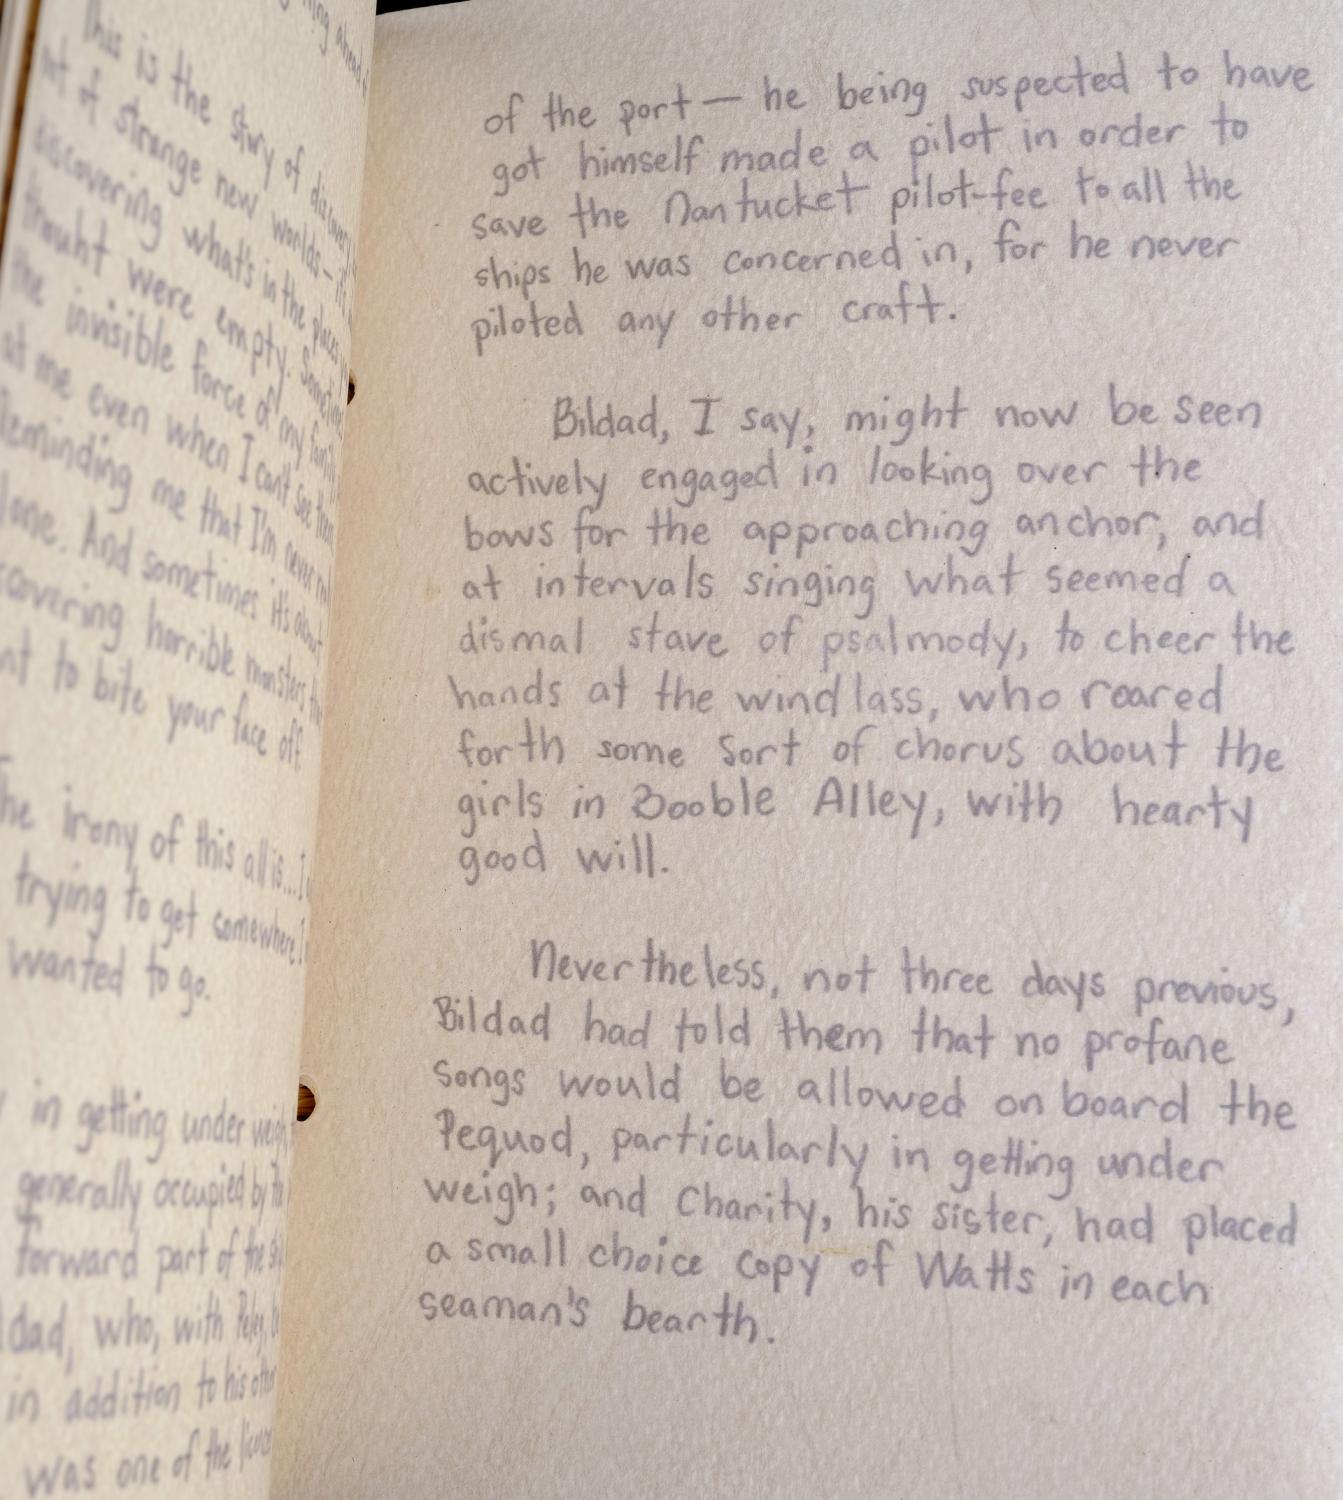 ning ahead
This is the story of discovery
of strange new worlds—
discovering what's in the places
thouht were empty. Sometimes
the invisible force of my family
at me even when I can't see them
Reminding me that I'm never
lone. And sometimes it's about
scovering horrible monsters
nt to bite your face off.
The irony of this all is... I
trying to get somewhere I
wanted to go.
in getting under weigh
generally occupied by
forward part of the
dad, who, with Peleg,
in addition to his other
was one of the
of the port — he being suspected to have
got himself made a pilot in order to
save the Nantucket pilot-fee to all the
ships he was concerned in, for he never
piloted any other craft.
Bildad, I say, might now be seen
actively engaged in looking over the
bows for the approaching anchor, and
at intervals singing what seemed a
dismal stave of psalmody, to cheer the
hands at the windlass, who roared
forth some sort of chorus about the
girls in Booble Alley, with hearty
good will.
Nevertheless, not three days previous,
Bildad had told them that no profane
songs would be allowed on board the
Pequod, particularly in getting under
weigh; and Charity, his sister, had placed
a small choice copy of Watts in each
seaman's bearth.